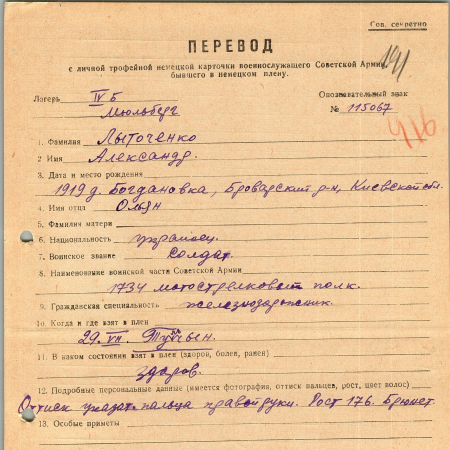 Сов. секретно
ПЕРЕВОД
с личной трофейной немецкой карточки военнослужащего Советской Армии,
бывшего в немецком плену.
141
Лагерь IV Б
Опознавательный знак
Мюльберг
№ 115067
916
1. Фамилия Лыточенко
2 Имя Александр.
3. Дата и место рождения
1919 д. Богдановка, Броварский р-н, Киевской обл.
4. Имя отца
5. Фамилия матери
6. Национальность украинец.
7. Воинское звание солдат.
8. Наименование воинской части Советской Армии
1734 мотострелковый полк.
9. Гражданская специальность железнодорожник.
10. Когда и где взят в плен
29. VII.
11. В каком состоянии взят в плен (здоров, болен, ранен)
здоров.
12. Подробные персональные данные (имеется фотография, оттиск пальцев, рост, цвет волос)
Оттиск указат. пальца правой руки. Рост 176. Брюнет.
13. Особые приметы